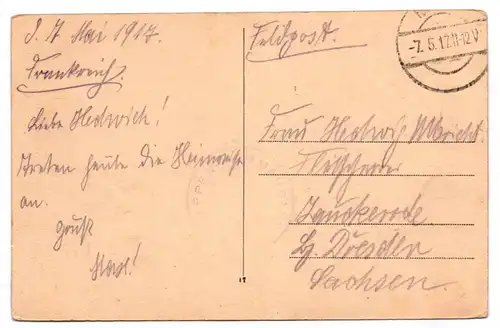 d. 7 Mai 1917.
Frankreich.
Liebe Hedwich!
treten heute die Heimreise
an.
Gruß
Max!
Feldpost.
-7. 5. 17. 11-12 V
Frau Hedwig Albricht.
Zauckerode
bz. Dresden
Sachsen.
17